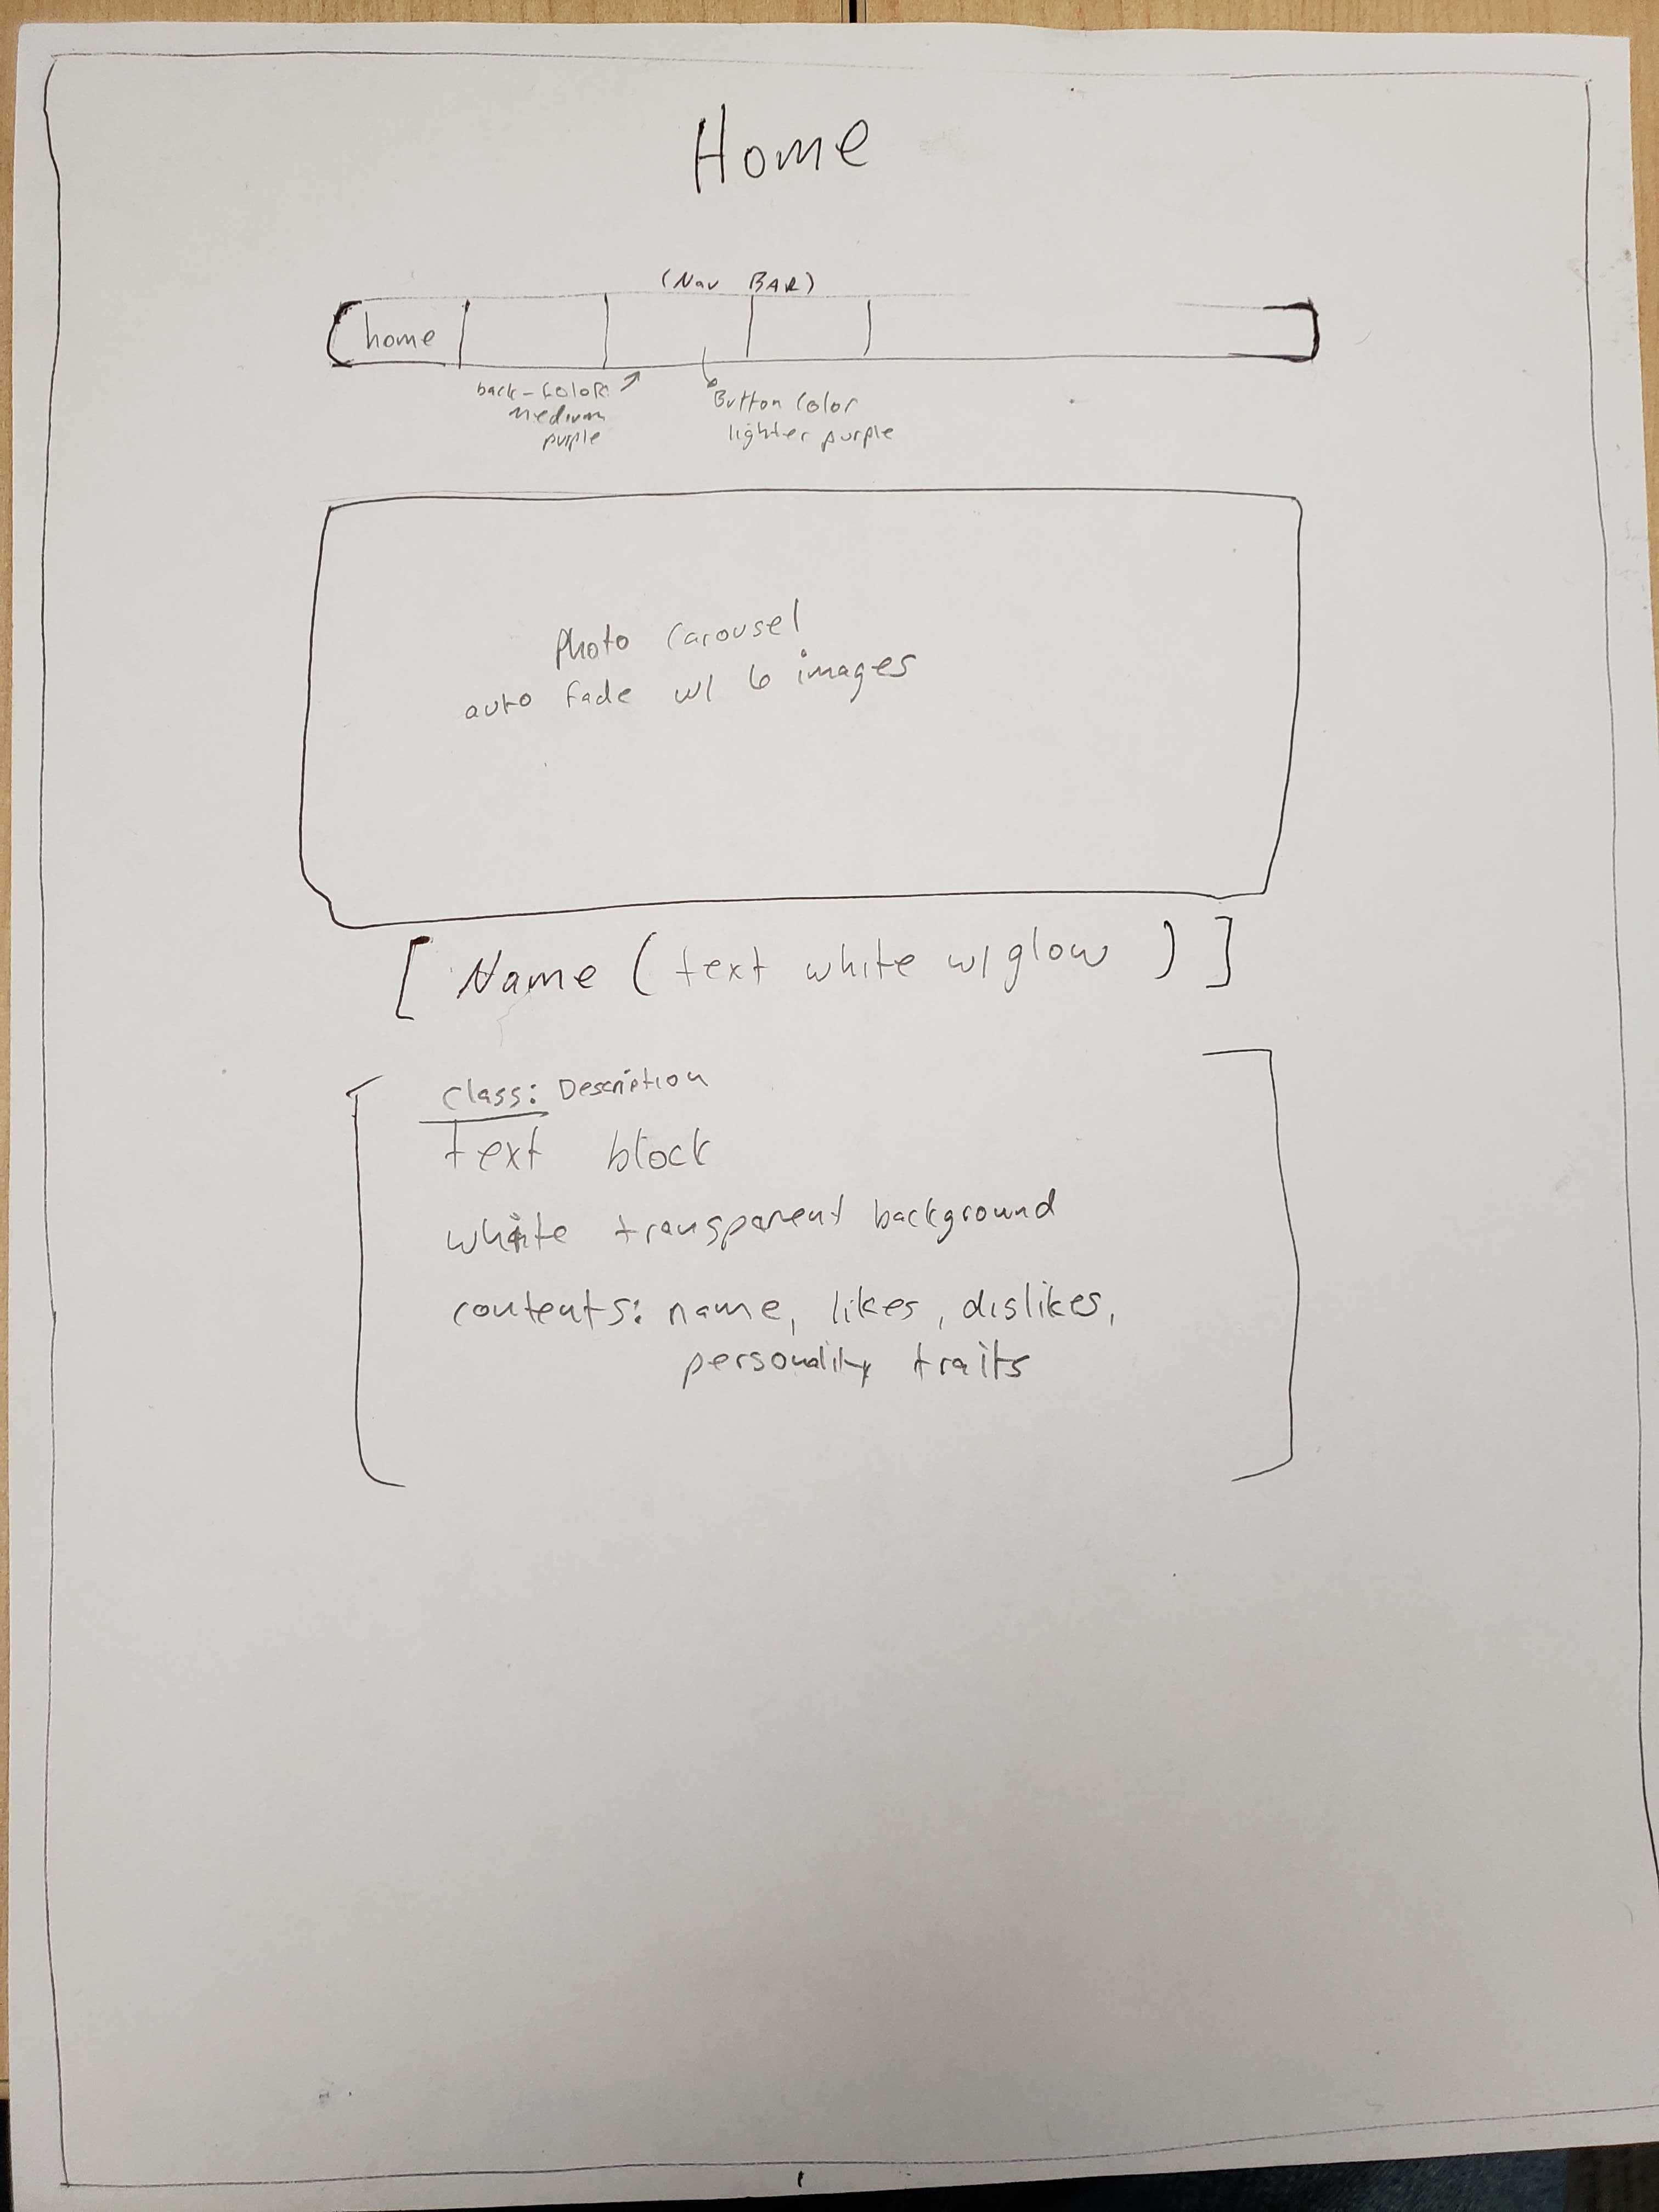 Home
(Nav BAR)
home
back-color:
medium
purple
Button color
lighter purple
Photo Carousel
auto fade w/ 6 images
[ Name ( text white w/ glow ) ]
class: Description
text block
white transparent background
contents: name, likes, dislikes,
personality traits